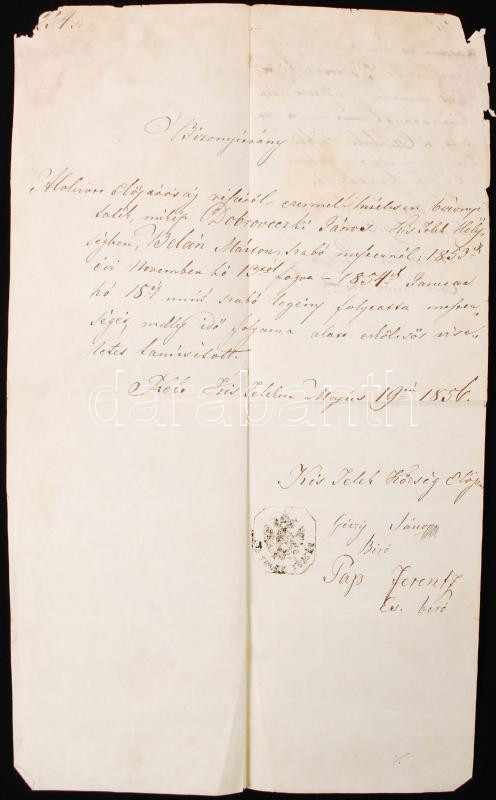 Bizonyitvány
Alolirott Elöljáróság részéröl ezennel hitelesen bizonyi-
tatik, miszerint Dobroveczki János Kis Telek Hely-
ségben, Belán Márton szabó mesternél, 1853ik
évi November hó 13tól fogva – 1854ik Januar
hó 18ig mint szabó legény folytatta mester-
ségét, melly idő folyama alatt erkölcsös vise-
letet tanusitott.
Kelt Kis Teleken Május 19én 1856.
Kis Telek Község Elöljá
Géczy János
Biró
Pap Ferentz
Es. biró
darabanth